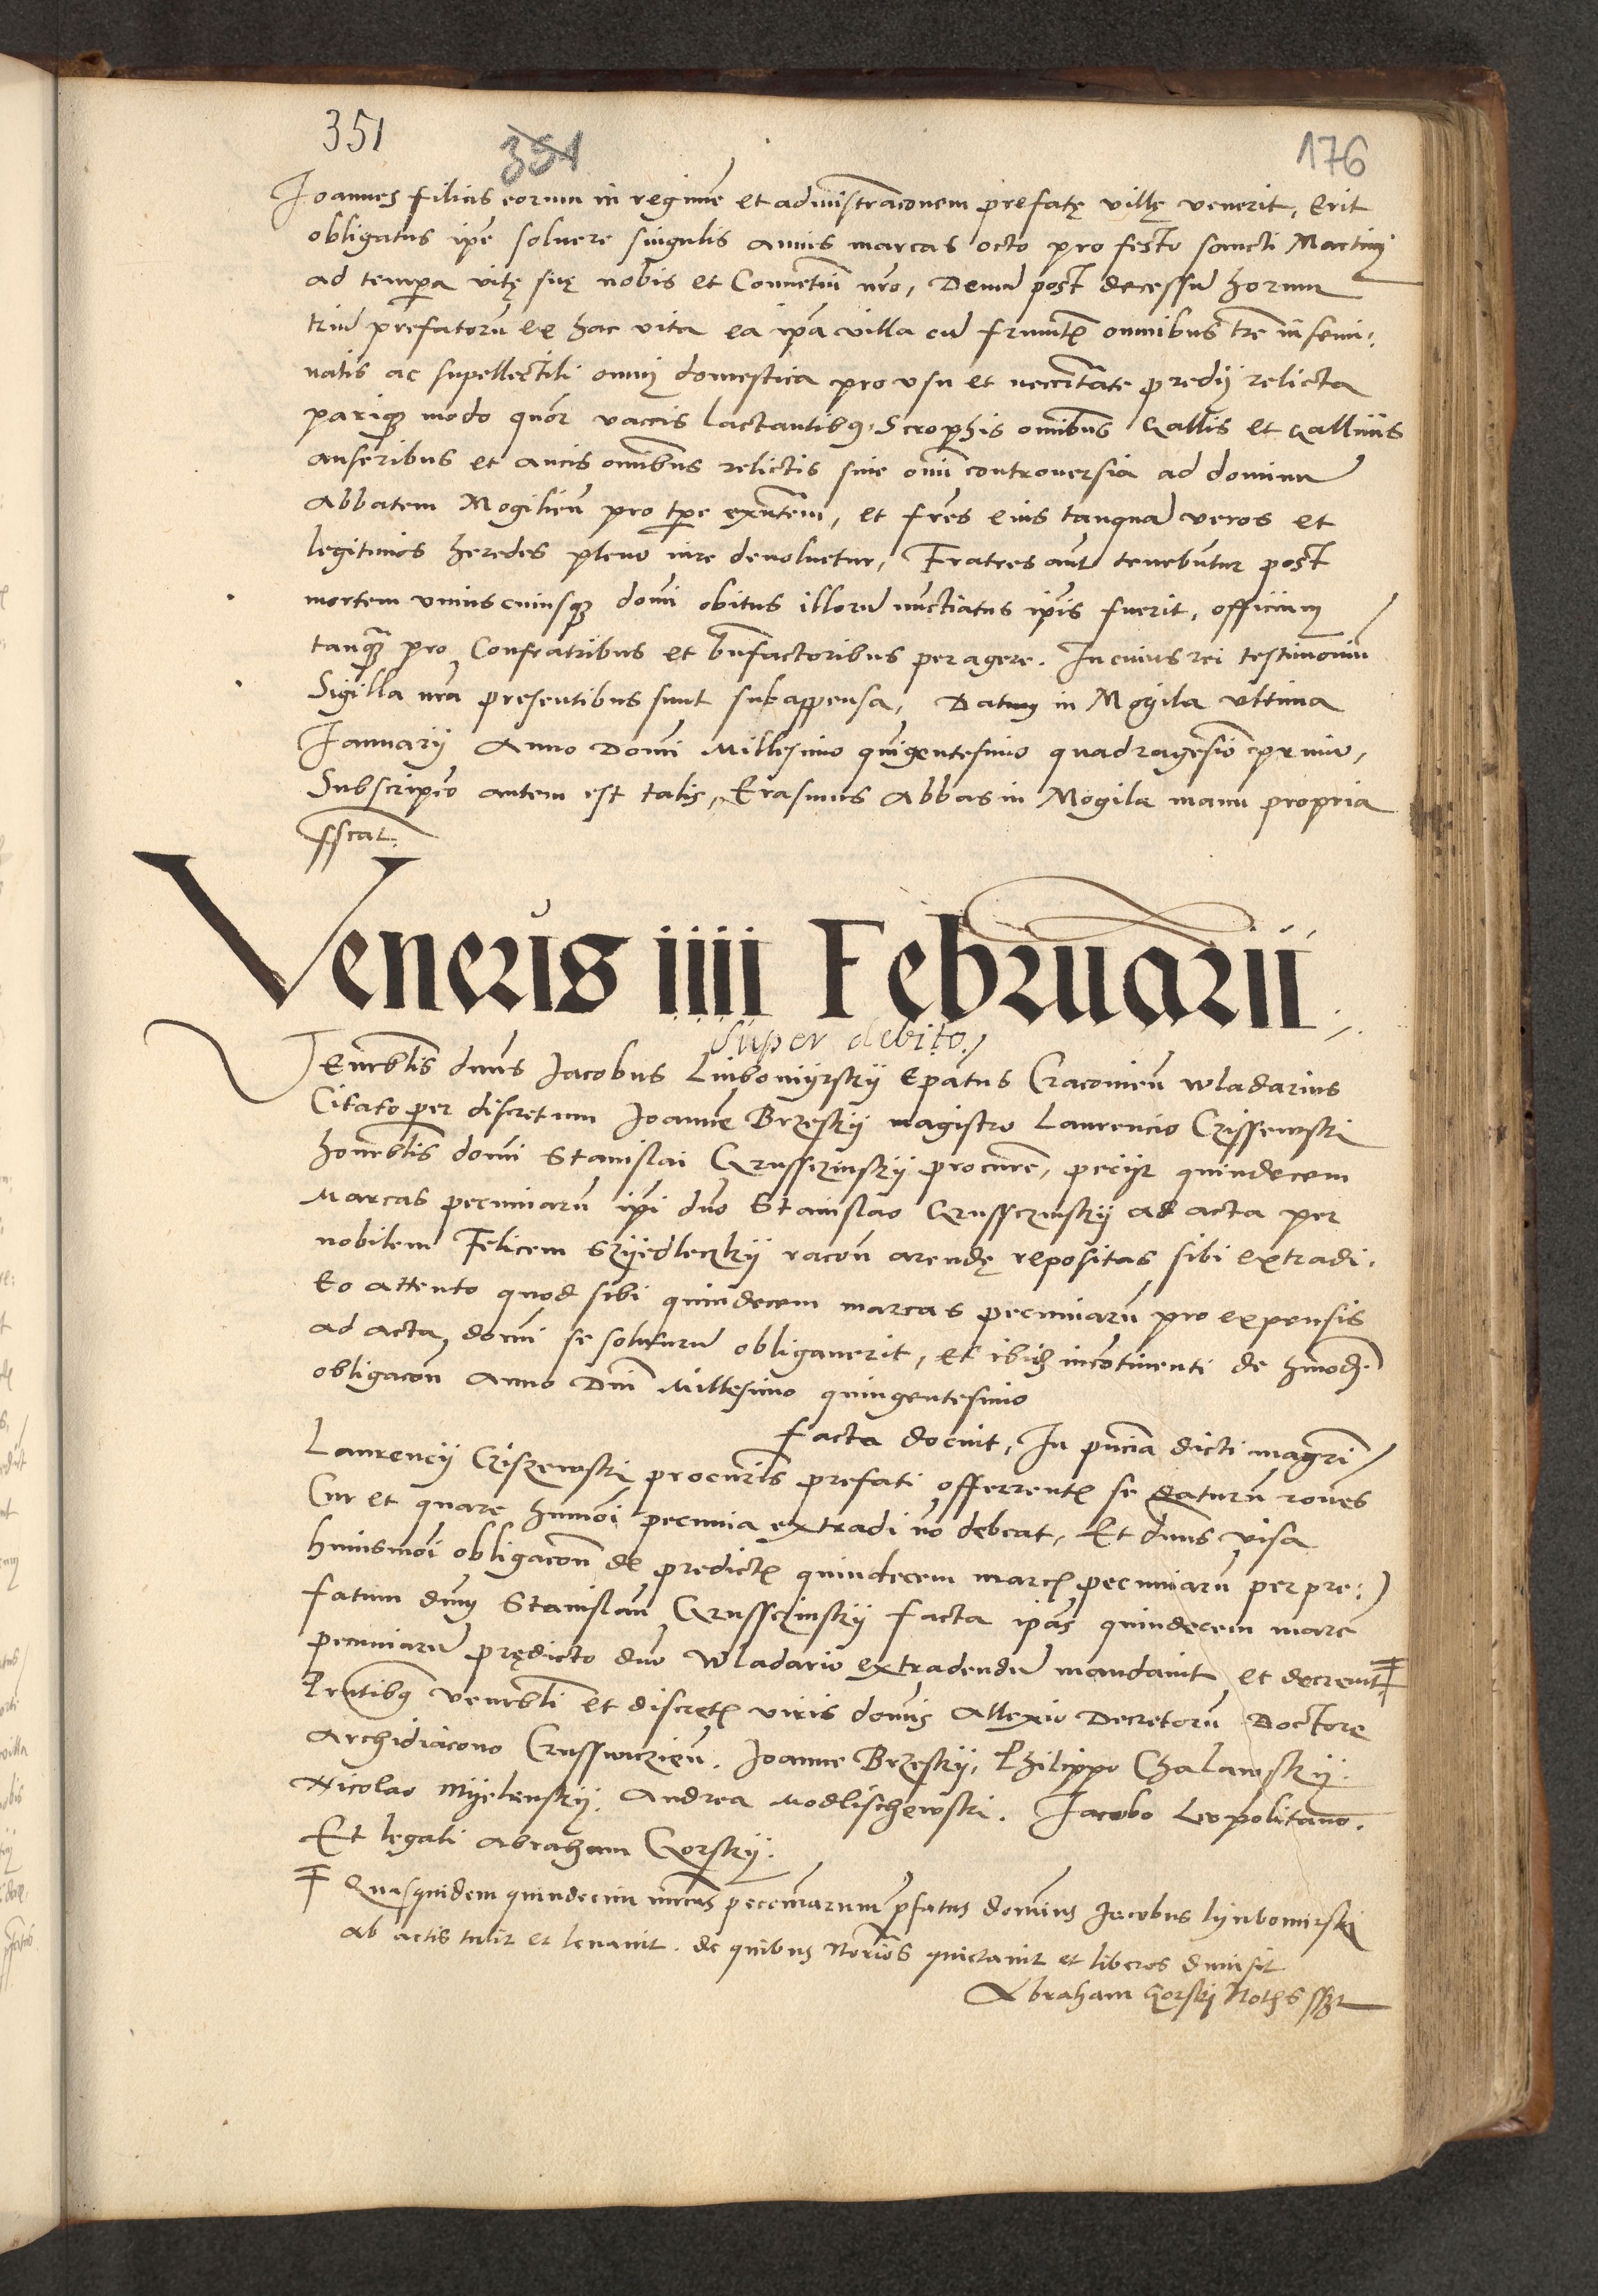 351 351 176
Joannes filius eorum in regimē et administracionem prefatę villę venerit, Erit
obligatus ipē soluere singulis annis marcas octo pro festo sancti Martini
ad tempa vitę suę nobis et Conuentui nr̃o, Demū post decessū horum
triū prefatorū ex hac vita ea ipā villa cū frumentꝭ omnibus tr̃e insemi:
natis ac supellectili omni domestica pro vsu et necc̃itate predij relicta
pariqꝫ modo quōr vaccis lactantibꝰ Scrophis om̃ibus Gallis et Gallinis
anseribus et aucis om̃ibus relictis sine om̃i controuersia ad dominū
Abbatem Mogilien̄ pro tp̃e exn̄tem, et fr̃es eius tanquā veros et
legitimos heredes pleno iure deuoluetur, Fratres aūt tenebuntur post
mortem vniuscuiusqꝫ domi obitus illorū nunctiatus ip̄is fuerit, officium
tanqꝫ pro Confratribus et bn̄factoribus peragere. In cuius rei testimoniū
Sigilla nr̃a presentibus sunt subappensa, Datum in Mogila vltima
Januarij Anno Domi Millesimo quīgentesimo quadragesīo primo,
Subscripcō autem est talis, Erasmus Abbas in Mogila manu propria
sscat.
Veneris iiii Februarii
super debito
Venerb̄lis dn̄us Jacobus Liubomijrskij Ep̄atus Cracouien̄ wladarius
Citato per discretum Joannē Brzeskij magistro Laurencio Czissewski
honorb̄lis domī Stanislai Grusszinskij procurē, pecijt quindecem
Marcas pecuniarū ip̄i dn̄o Stanislao Grussczinskij ad acta per
nobilem Felicem Szijedleczkij racōn arendę repositas sibi extradi.
Eo attento quod sibi quindecem marcas pecuniarū pro expensis
ad acta, domī se soluturū obligauerit, et ibidꝫ incontinenti de hmōdi
obligacōn Anno Dn̄i Millesimo quingentesimo
facta docuit, In pn̄cia dicti magr̃i
Laurencij Cziszewski procur̃is prefati offerrentꝭ se daturū rōnes
Cur et quare hmōi pecunia extradi nō debeat, Et dn̄us visa
huiusmōi obligacōn de predictꝭ quindecem marcꝭ pecuniarū per pre:
fatum dn̄m Stanislaū Grussczinskij facta ip̄as quindecem marc̄
pecuniarū prędicto dn̄o Wladario extradendū mandauit et decreuit
Prn̄tibꝰ venerb̄li et discretꝭ viris domīs Allexio Decretorū Doctore
Archidiacono Crusswicien̄. Joanne Brzeskij, Philippo Chalawskij.
Nicolao Mijelenskij. Andrea Modlischewski. Jacobo Leopolitano.
Et legali Abraham Gorskij.
Quasquidem quindecim mrcas pecuniarum p̄fatus dominus Jacobus lijubomirski
ab actis tulit et leuauit. de quibus Notarios quictauit et liberos dimisit
Abraham Gorski Notꝰs sszt